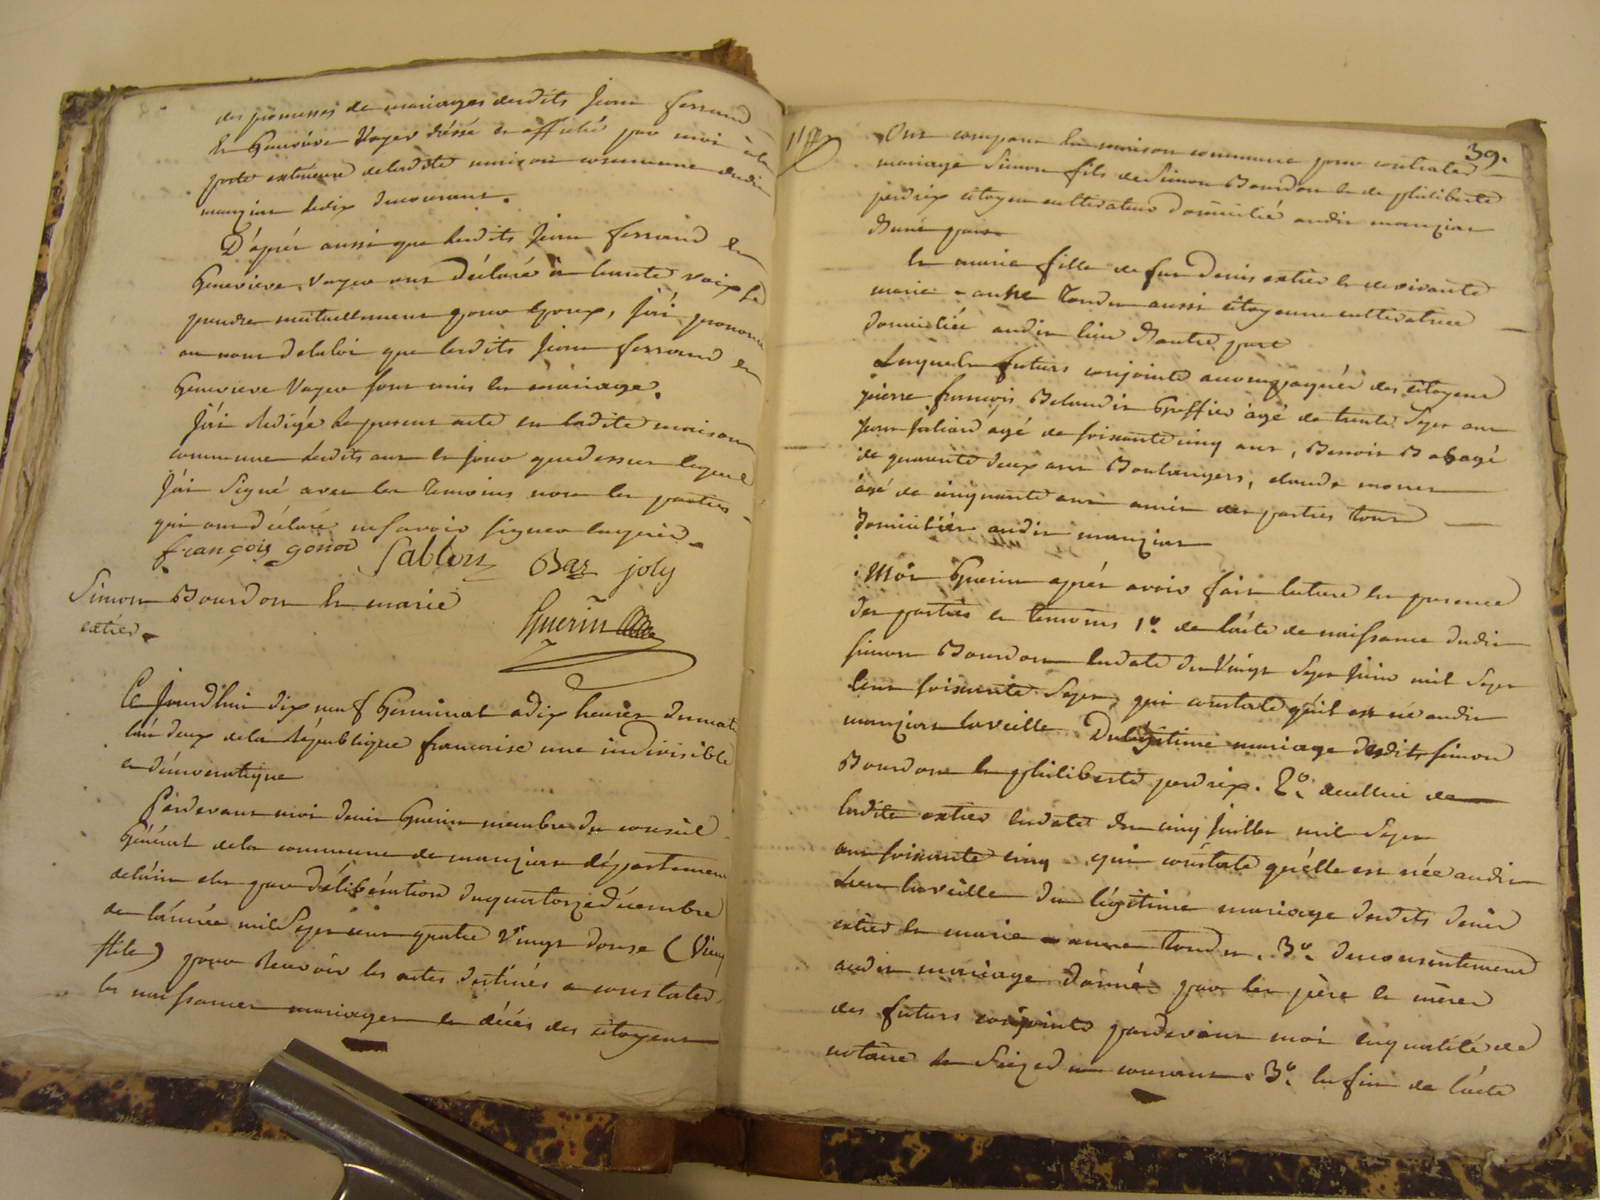 des promesses de mariages desdits Jean ferrand
Et Genevieve Voyer dréssé et affiché par moi a la
porte extérieure de ladite maison commune dudit
manziat ledix ducourant.
D'apprés aussi que lesdits Jean ferrand et
Genevieve Voyer ont déclaré à haute voix se
prendre mutuellement pour Epoux, J'ai prononcé
au nom delaloi que lesdits Jean ferrand et
Genevieve Voyer sont unis en mariage.
J'ai Redigé le present acte en ladite maison
commune lesdits an et jour quedessus lequel
J'ai Signé avec les temoins non les parties
qui ont déclaré nesavoir signer enquis
françois gonod Sablon Bas joly
Guerin
Simon Bourdon et marie
extier
Ce Jourd'hui dix neuf Germinal adix heures dumatin
l'an deux dela République francaise une indivisible
et démocratique
Pardevant moi denis Guerin membre du conseil
Général dela commune de manziat département
delain élu par délibération duquatorze décembre
de l'année mil Sept cent quatre Vingt douze (Vieux
stile) pour Recevoir les actes destinés a constater
les naissances mariages et décés des citoyens
39.
Ont comparu en maison commune pour contracter
mariage Simon fils de Simon Bourdon et de philiberte
perdrix citoyen cultivateur domicilié audit manziat
d'une part
Et marie fille de feu denis extier et de vivante
marie-anne Tondu aussi citoyenne cultivatrice
domiciliée audit lieu d'autre part
Lesquels futurs conjoints accompagnés des citoyens
pierre françois Belaudin Greffier âgé de trente Sept ans
Jean Jaliard âgé de soixante cinq ans, Benoit âgé
de quarante deux ans Boulangers, claude
âgé de cinquante ans amis des parties tous
domiciliés audit manziat
Moi Guerin apprés avoir fait lecture en presence
des parties et temoins 1º. de l'acte de naissance dudit
simon Bourdon endate du Vingt Sept Juin mil Sept
cent soixante Sept, qui constate qu'il est né audit
manziat laveille Dulégitime mariage desdits simon
Bourdon et philiberte perdrix. 2º. decellui de
ladite extier endate du cinq Juillet mil Sept
cent soixante cinq qui constate qu'elle est née audit
Lieu laveille du légitime mariage desdits denis
extier et marie anne Tondu. 3º. duconsentement
audit mariage donné par les père et mères
des futurs conjoints pardevant moi enqualité de
notaire le Seize du courant. 3º. enfin de l'acte